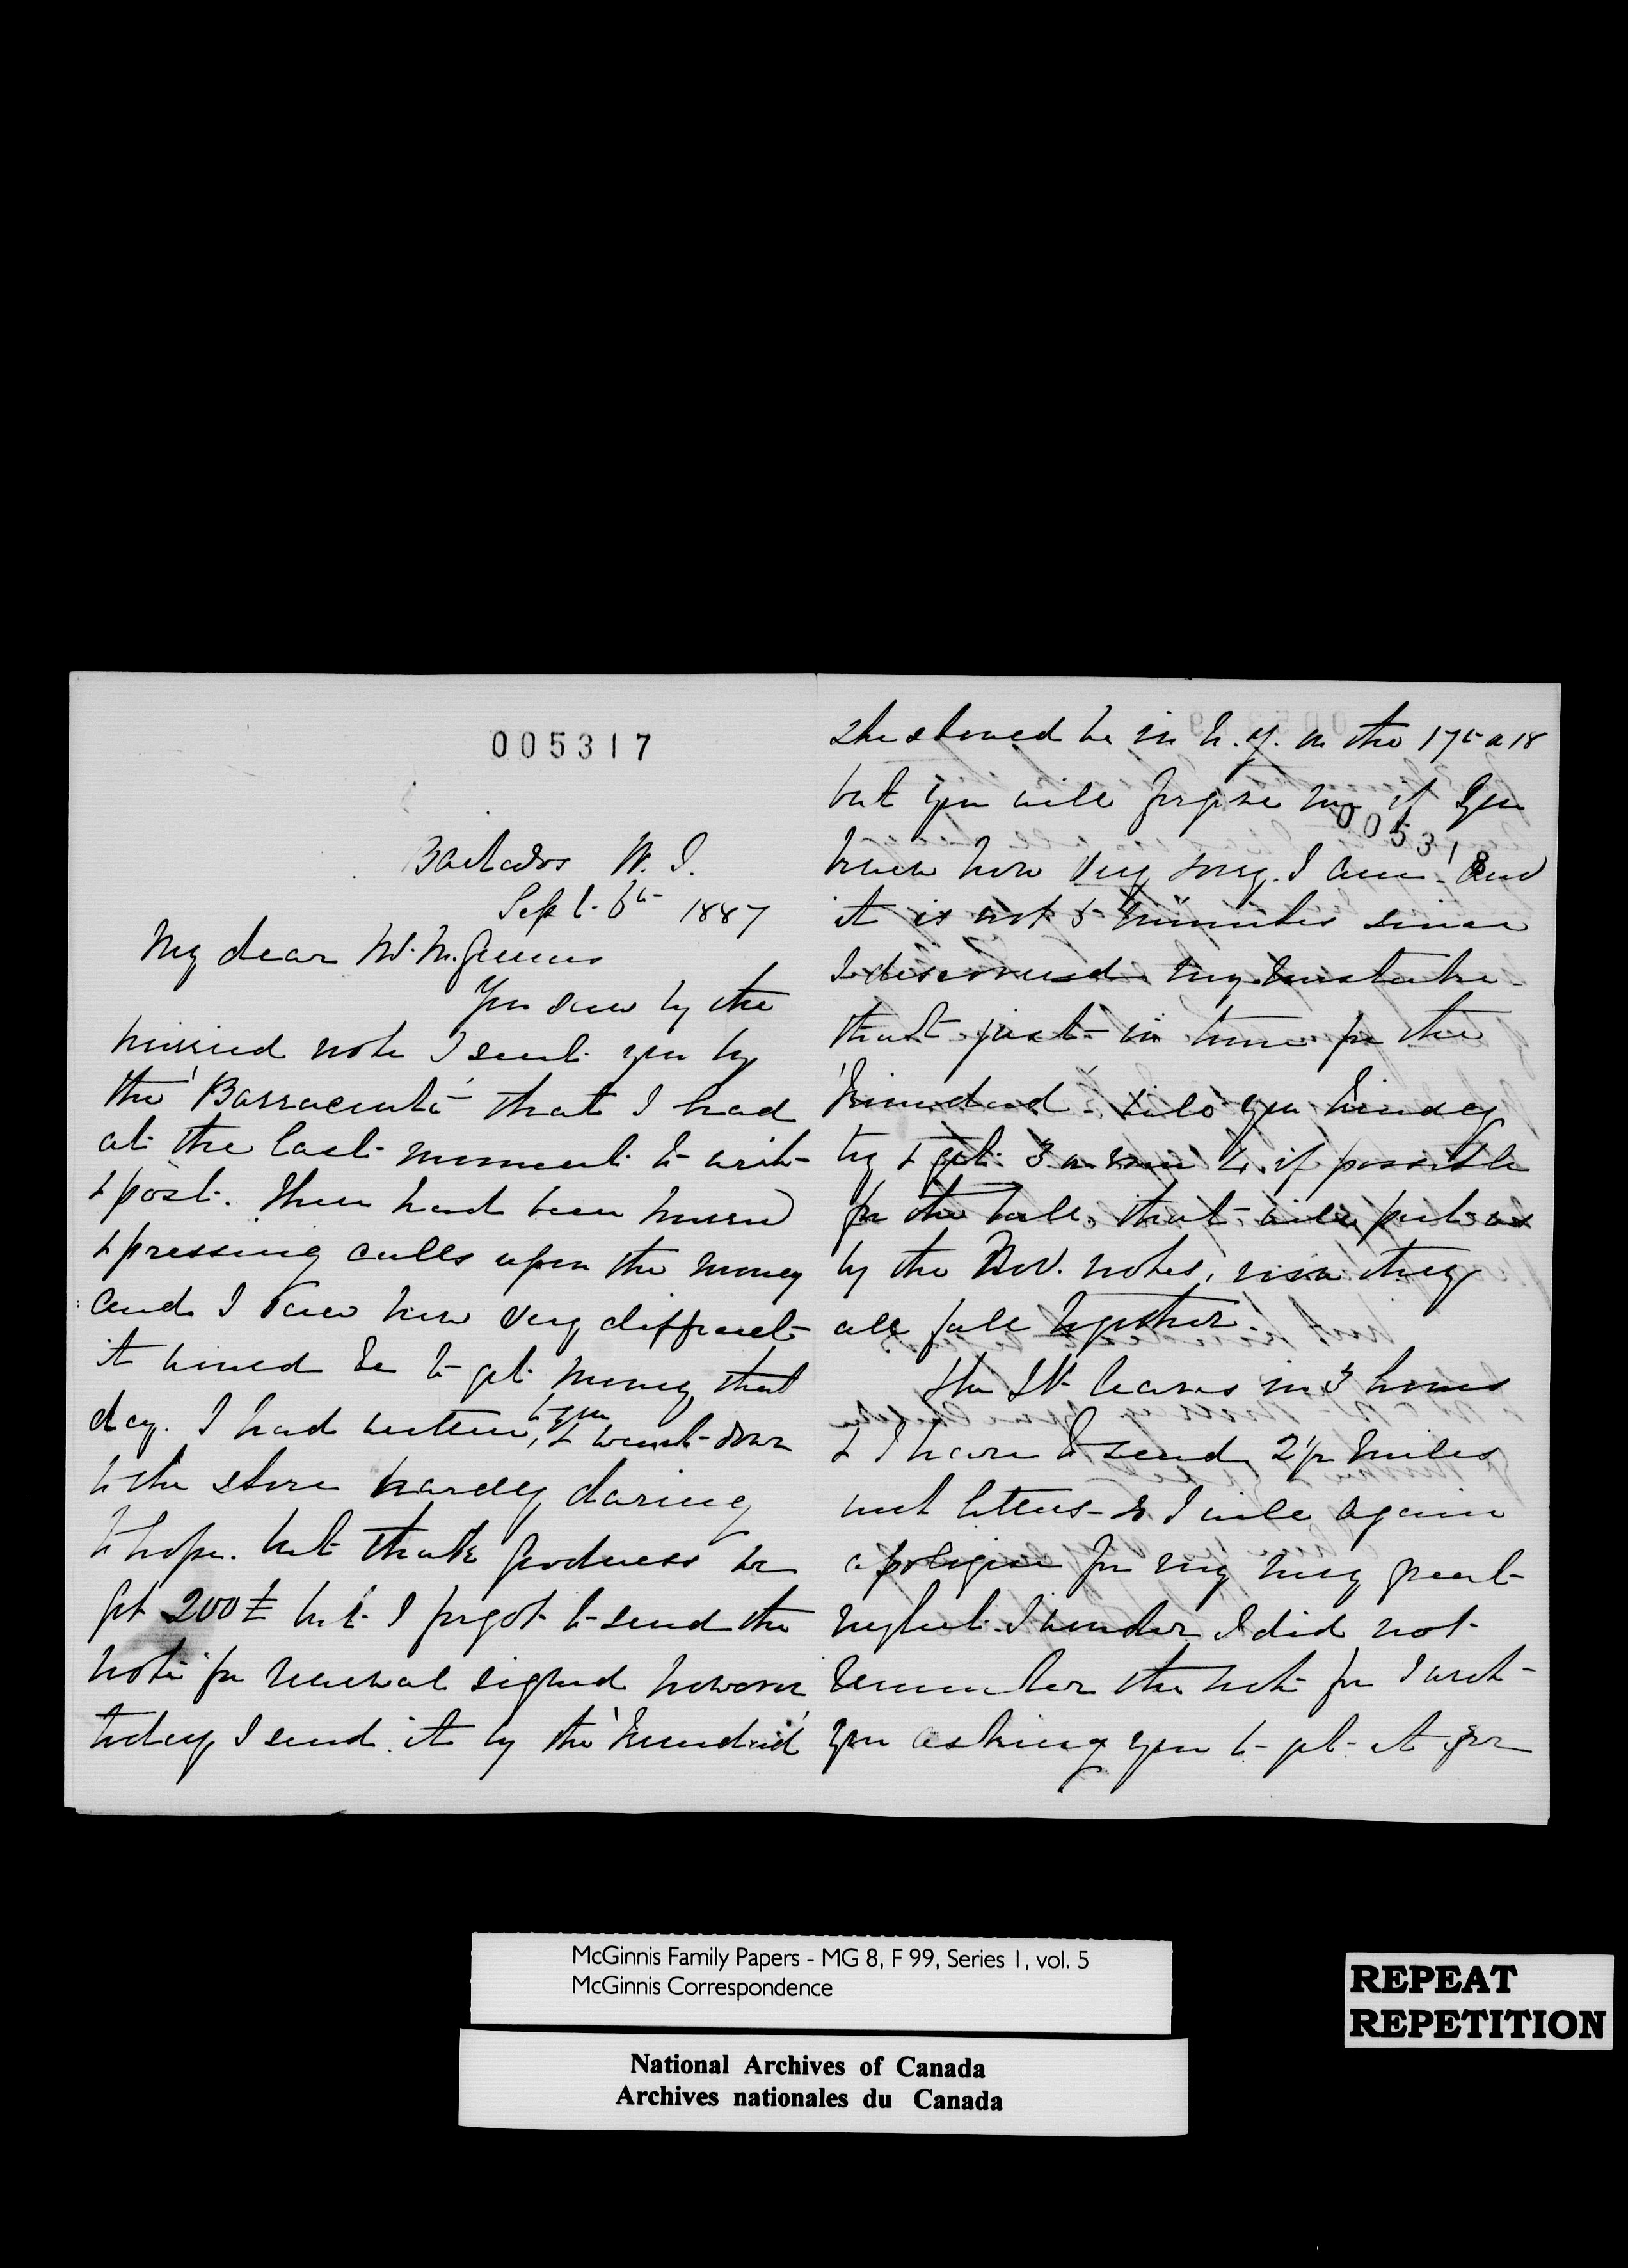 005317
Barbados W. I.
Sept. 6th 1887
My dear Mr. McGinnis
You saw by the
hurried note I sent you by
the 'Barracouta' that I had
at the last moment to write
& post. There had been
& pressing calls upon the money
and I saw how very difficult
it would be to get money that
day. I had written, to you & went down
to the store hardly daring
to hope. but thank goodness we
got 200 £ but I forgot to send the
note for renewal signed however
today I send it by the 'Trinidad'
she should be in N. Y. on the 17th or 18
but you will forgive me if you
005318
knew how very sorry I am. And
it is not 5 minutes since
I discovered my mistake
that just in time for the
'Trinidad'. Will you kindly
try & get 3 or even 4 if possible
for the bill, that will put us
by the Nov. notes, now they
all fall together
The Str leaves in 3 hours
& I have to send 2 1/2 miles
with letters - so I will again
apologise for my very great
neglect. I wonder I did not
remember the note for I wrote
you asking you to get it for
McGinnis Family Papers - MG 8, F 99, Series 1, vol. 5
McGinnis Correspondence
National Archives of Canada
Archives nationales du Canada
REPEAT
REPETITION